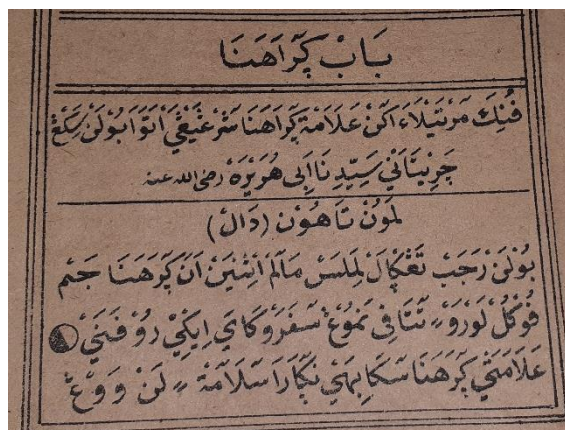 بَابْ ڮَرَاهَنَا
فُنِكَ مَرْتَيْلَاءَاكَنْ عَلَامَةْ ڮَرَاهَنَا سَرْڠَيْڠَيْ اَتَوَا بُوْلَنْ سَكِڠْ
چَرِيْتَانَيْ سَيِّدِنَا اَبِى هُرَيْرَهْ رضى الله عنه
لَمُوْنْ تَاهُوْن (دَالْ)
بُوْلَنْ رَجَبْ تَڠْڮَالْ لِمَلَسْ مَالَمْ اِثْنَيْنْ اَنَ ڮَرَهَنَا جَمْ
فُوْكُلْ لَوْرَوْ ۲ تَتَافِى نَمُوْڠْ سَفَرَوْ كَايَ اِيْكِيْ رُوْفَنَيْ
عَلَامَتَيْ ڮَرَهَنَا سَكَابِيْهَيْ نَڮَارَا سَلَامَةْ ۲ لَنْ وَوْڠْ